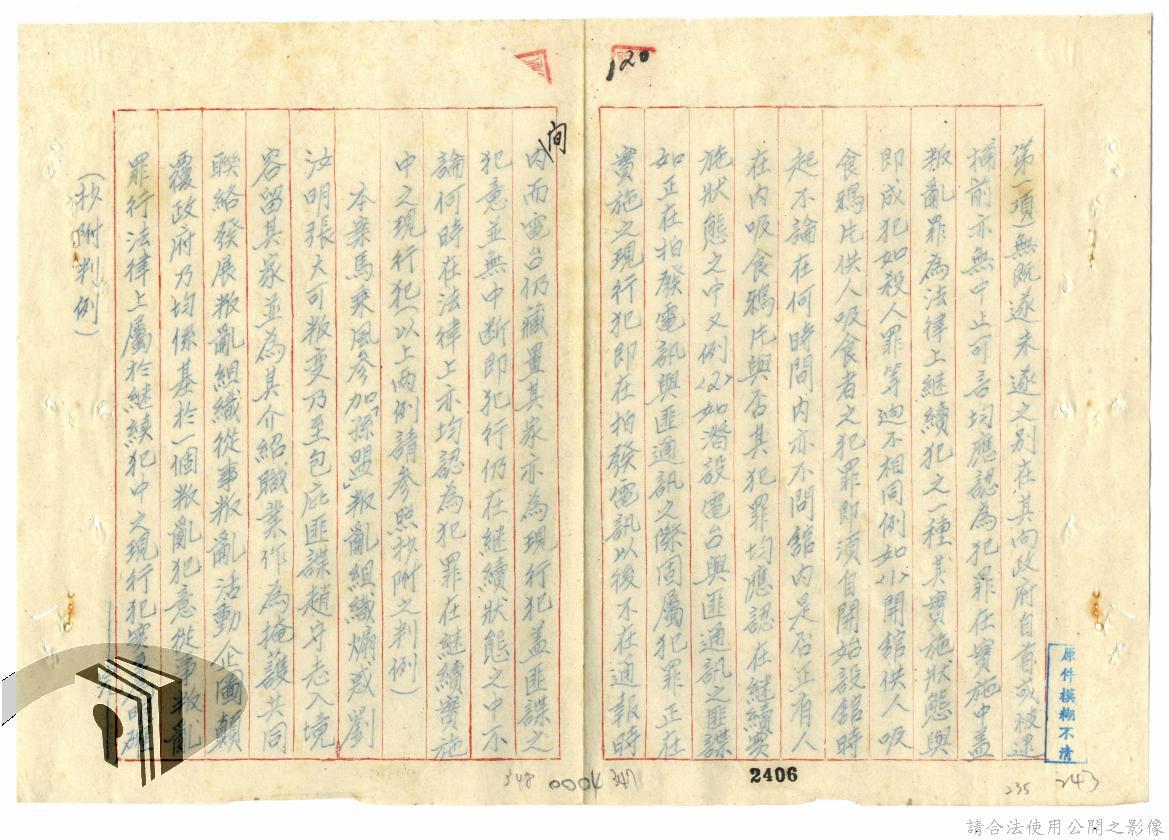 120
第一項）無既遂未遂之別在其向政府自首或被逮
捕前亦無中止可言均應認為犯罪在實施中蓋
叛亂罪為法律上繼續犯之一種其實施狀態與
即成犯如殺人罪等迥不相同例如(1)開舘供人吸
食鴉片供人吸食者之犯罪即須自開始設舘時
起不論在何時間內亦不問舘內是否正有人
在內吸食鴉片與否其犯罪均應認在継續實
施狀態之中又例(2)如潛設電台與匪通訊之匪諜
如正在拍發電訊與匪通訊之際固屬犯罪正在
實施之現行犯即在拍發電訊以後不在通報時
間
內而電台仍藏置其家亦為現行犯蓋匪諜之
犯意並無中斷即犯行仍在継續狀態之中不
論何時在法律上亦均認為犯罪在継續實施
中之現行犯（以上兩例請參照抄附之判例）
本案馬乘風參加「孫盟」叛亂組織煽惑劉
汝明張大可叛变乃至包庇匪諜趙守志入境
容留其家並為其介紹職業作為掩護共同
聯絡發展叛亂組織從事叛亂活動企圖顛
覆政府乃均係基於一個叛亂犯意從事叛亂
罪行法律上屬於継續犯中之現行犯
（抄附判例）
原件模糊不清
348 0004 347
2406
235 243
請合法使用公開之影像